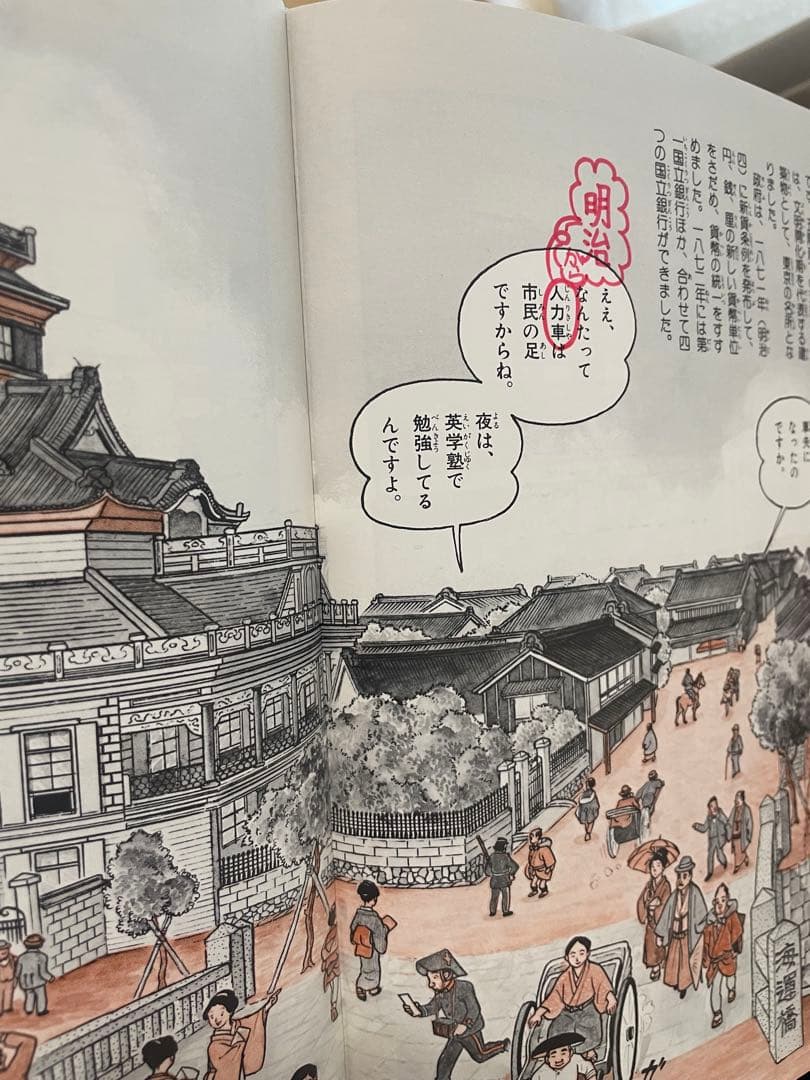 は、文明開化期を代表する建
築物として、東京の名所とな
りました。
政府は、一八七一年（明治
四）に新貨条例を発布して、
円、銭、厘の新しい貨幣単位
をさだめ、貨幣の統一をすす
めました。一八七二年には第
一国立銀行ほか、合わせて四
つの国立銀行ができました。
なったの
ですか。
明治
から
ええ、
なんたって
人力車は
市民の足
ですからね。
夜は、
英学塾で
勉強してる
んですよ。
海運橋
ガ